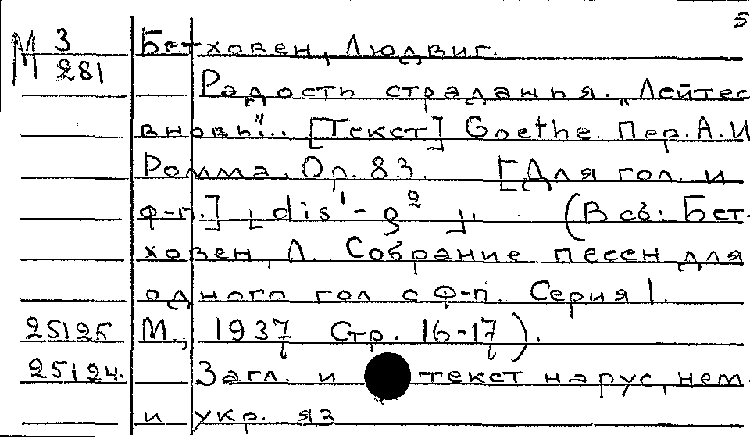 5
М 3 Бетховен, Людвиг.
281
Радость страданья. "Лейтес
вновь".. [Текст] Goethe. Пер. А. И
Ромма. Ор. 83. [Для гол. и
ф-п.] [dis¹-g²]. (В сб: Бет-
ховен, Л. Собрание песен для
одного гол с ф-п. Серия I.
25125 М., 1937 Стр. 16-17).
25124. Загл. и текст на рус, нем
и укр. яз